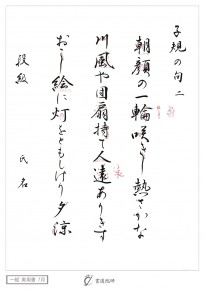 子規の句二
朝顔の一輪咲きし熱さかな
川風や団扇持て人遠ありきす
おし絵に灯をともしけり夕涼
段級 氏名